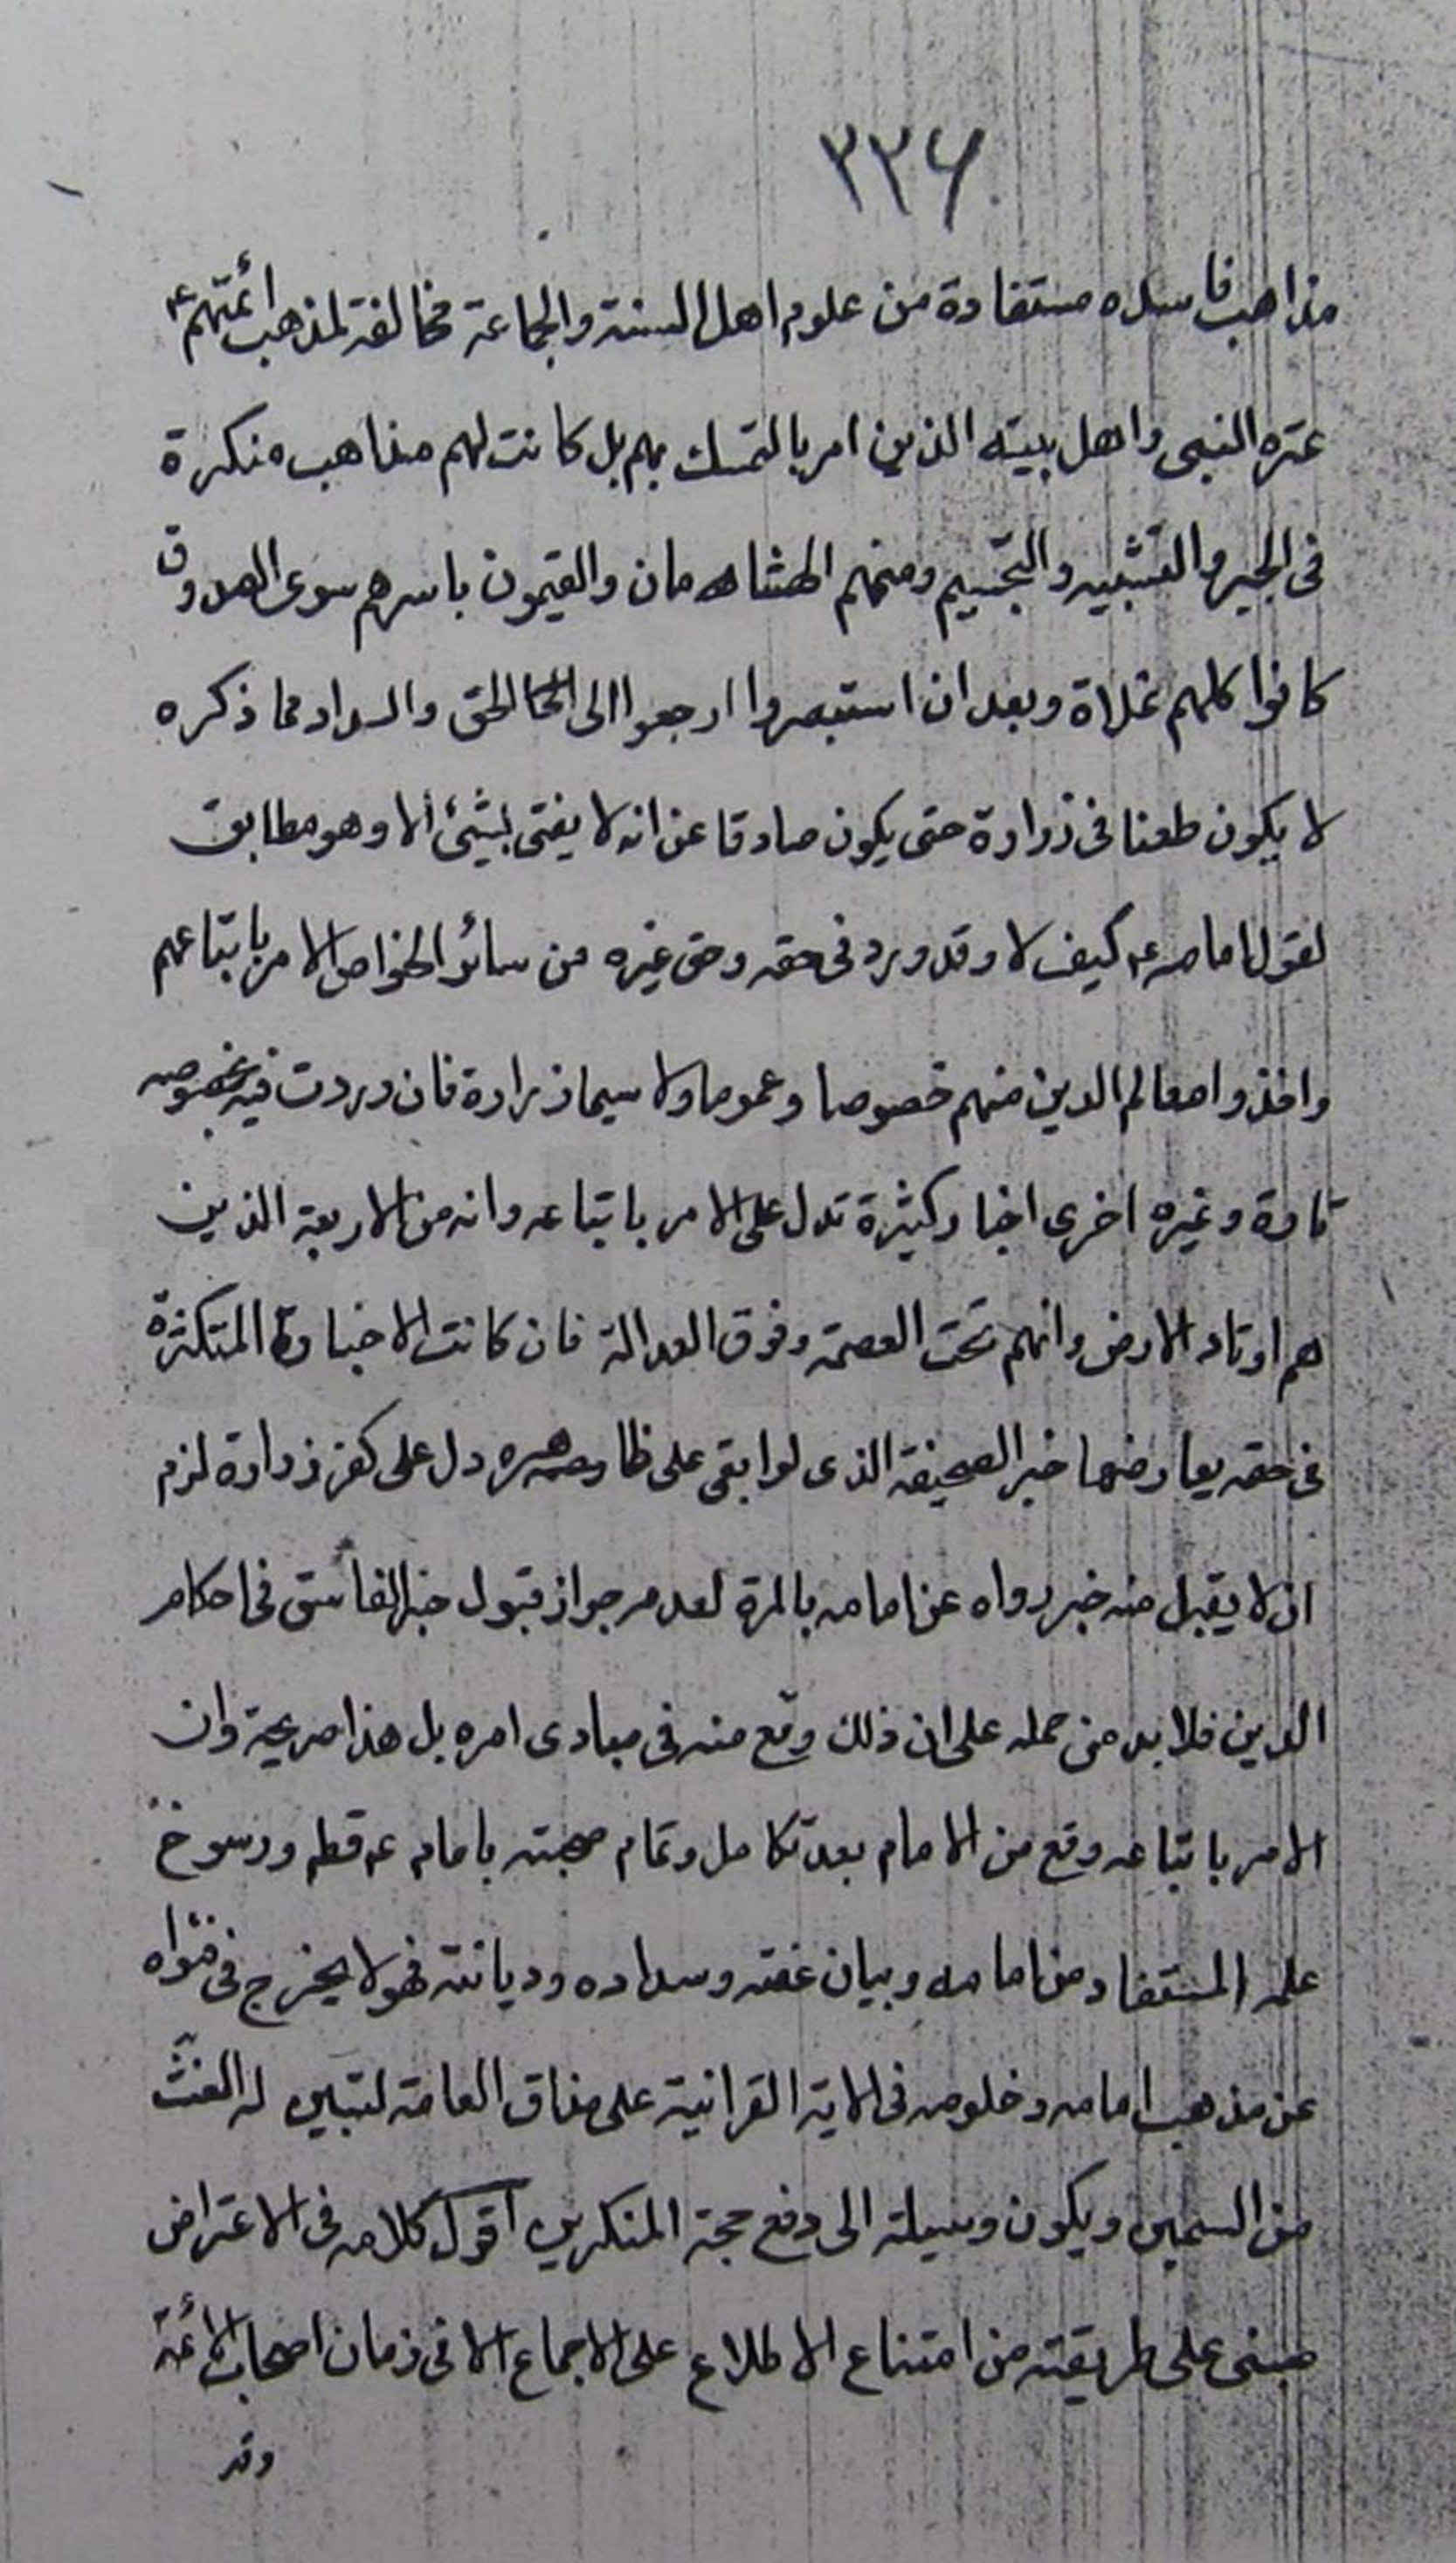 ٣٣۶
مذاهب فاسده مستفادة من علوم اهل السنة والجماعة مخالفة لمذهب ائمتهم ع
عترة النبى واهل بيته الذين امر بالتمسك بهم بل كانت لهم مذاهب منكرة
فى الجبر والتشبيه والتجسيم ومنهم الهشامان والقيمون باسرهم سوى الصدوق
كانوا كلهم غلاة وبعد ان استبصروا ارجعوا الى الحق والسداد فما ذكره
لا يكون طعنا فى زرارة حتى يكون صادقا عن انه لا يفتى بشئ الا وهو مطابق
لقول امامه ع كيف لا وقد ورد فى حقه وحق غيره من سائر الخواص الامر باتباعهم
واخذوا معالم الدين منهم خصوصا وعموما ولا سيما زرارة فان وردت فيه بخصوصه
تارة وغيره اخرى اخبار كثيرة تدل على الامر باتباعه وانه من الاربعة الذين
هم اوتاد الارض وانهم تحت العصمة وفوق العدالة فان كانت الاخبار المتكثرة
فى حقه يعارضها خبر الصحيفة الذى لو ابقى على ظاهره دل على كفر زرارة لزم
ان لا يقبل منه خبر رواه عن امامه بالمرة لعدم جواز قبول خبر الفاسق فى احكام
الدين فلا بد من حمله على ان ذلك وقع منه فى مبادى امره بل هذا صريحة وان
الامر باتباعه وقع من الامام بعد تكامل وتمام صحبته بامام ع قطه ورسوخ
علمه المستفاد من امامه وبيان عفته وسداده وديانته فهو لا يخرج فى فتواه
عن مذهب امامه وخلوصه فى الاية القرانية على مذاق العامة لتبين له الغث
من السمين ويكون وسيلة الى دفع حجة المنكرين اقول كلامه فى الاعتراض
مبنى على طريقته من امتناع الاطلاع على الاجماع الا فى زمان اصحاب الائمة
وقد